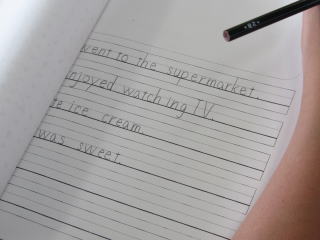 went to the supermarket.
enjoyed watching TV.
ice cream.
was sweet.